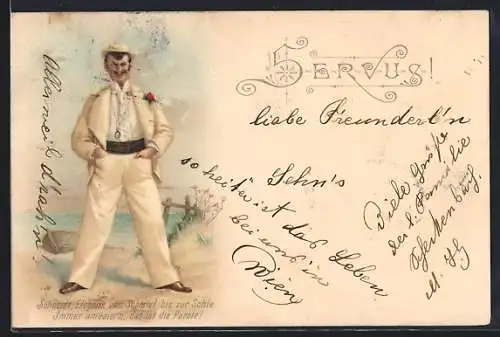 SERVUS!
liebe Freundert'n
Sehn's
so heiter ist das Leben
bei uns in
Wien
Alleweil d'rah'n!
Viele Grüße
der l. Familie
M.
Schneider, Eleganz vom Scheitel bis zur Sohle
Immer anheitern, das ist die Parole!